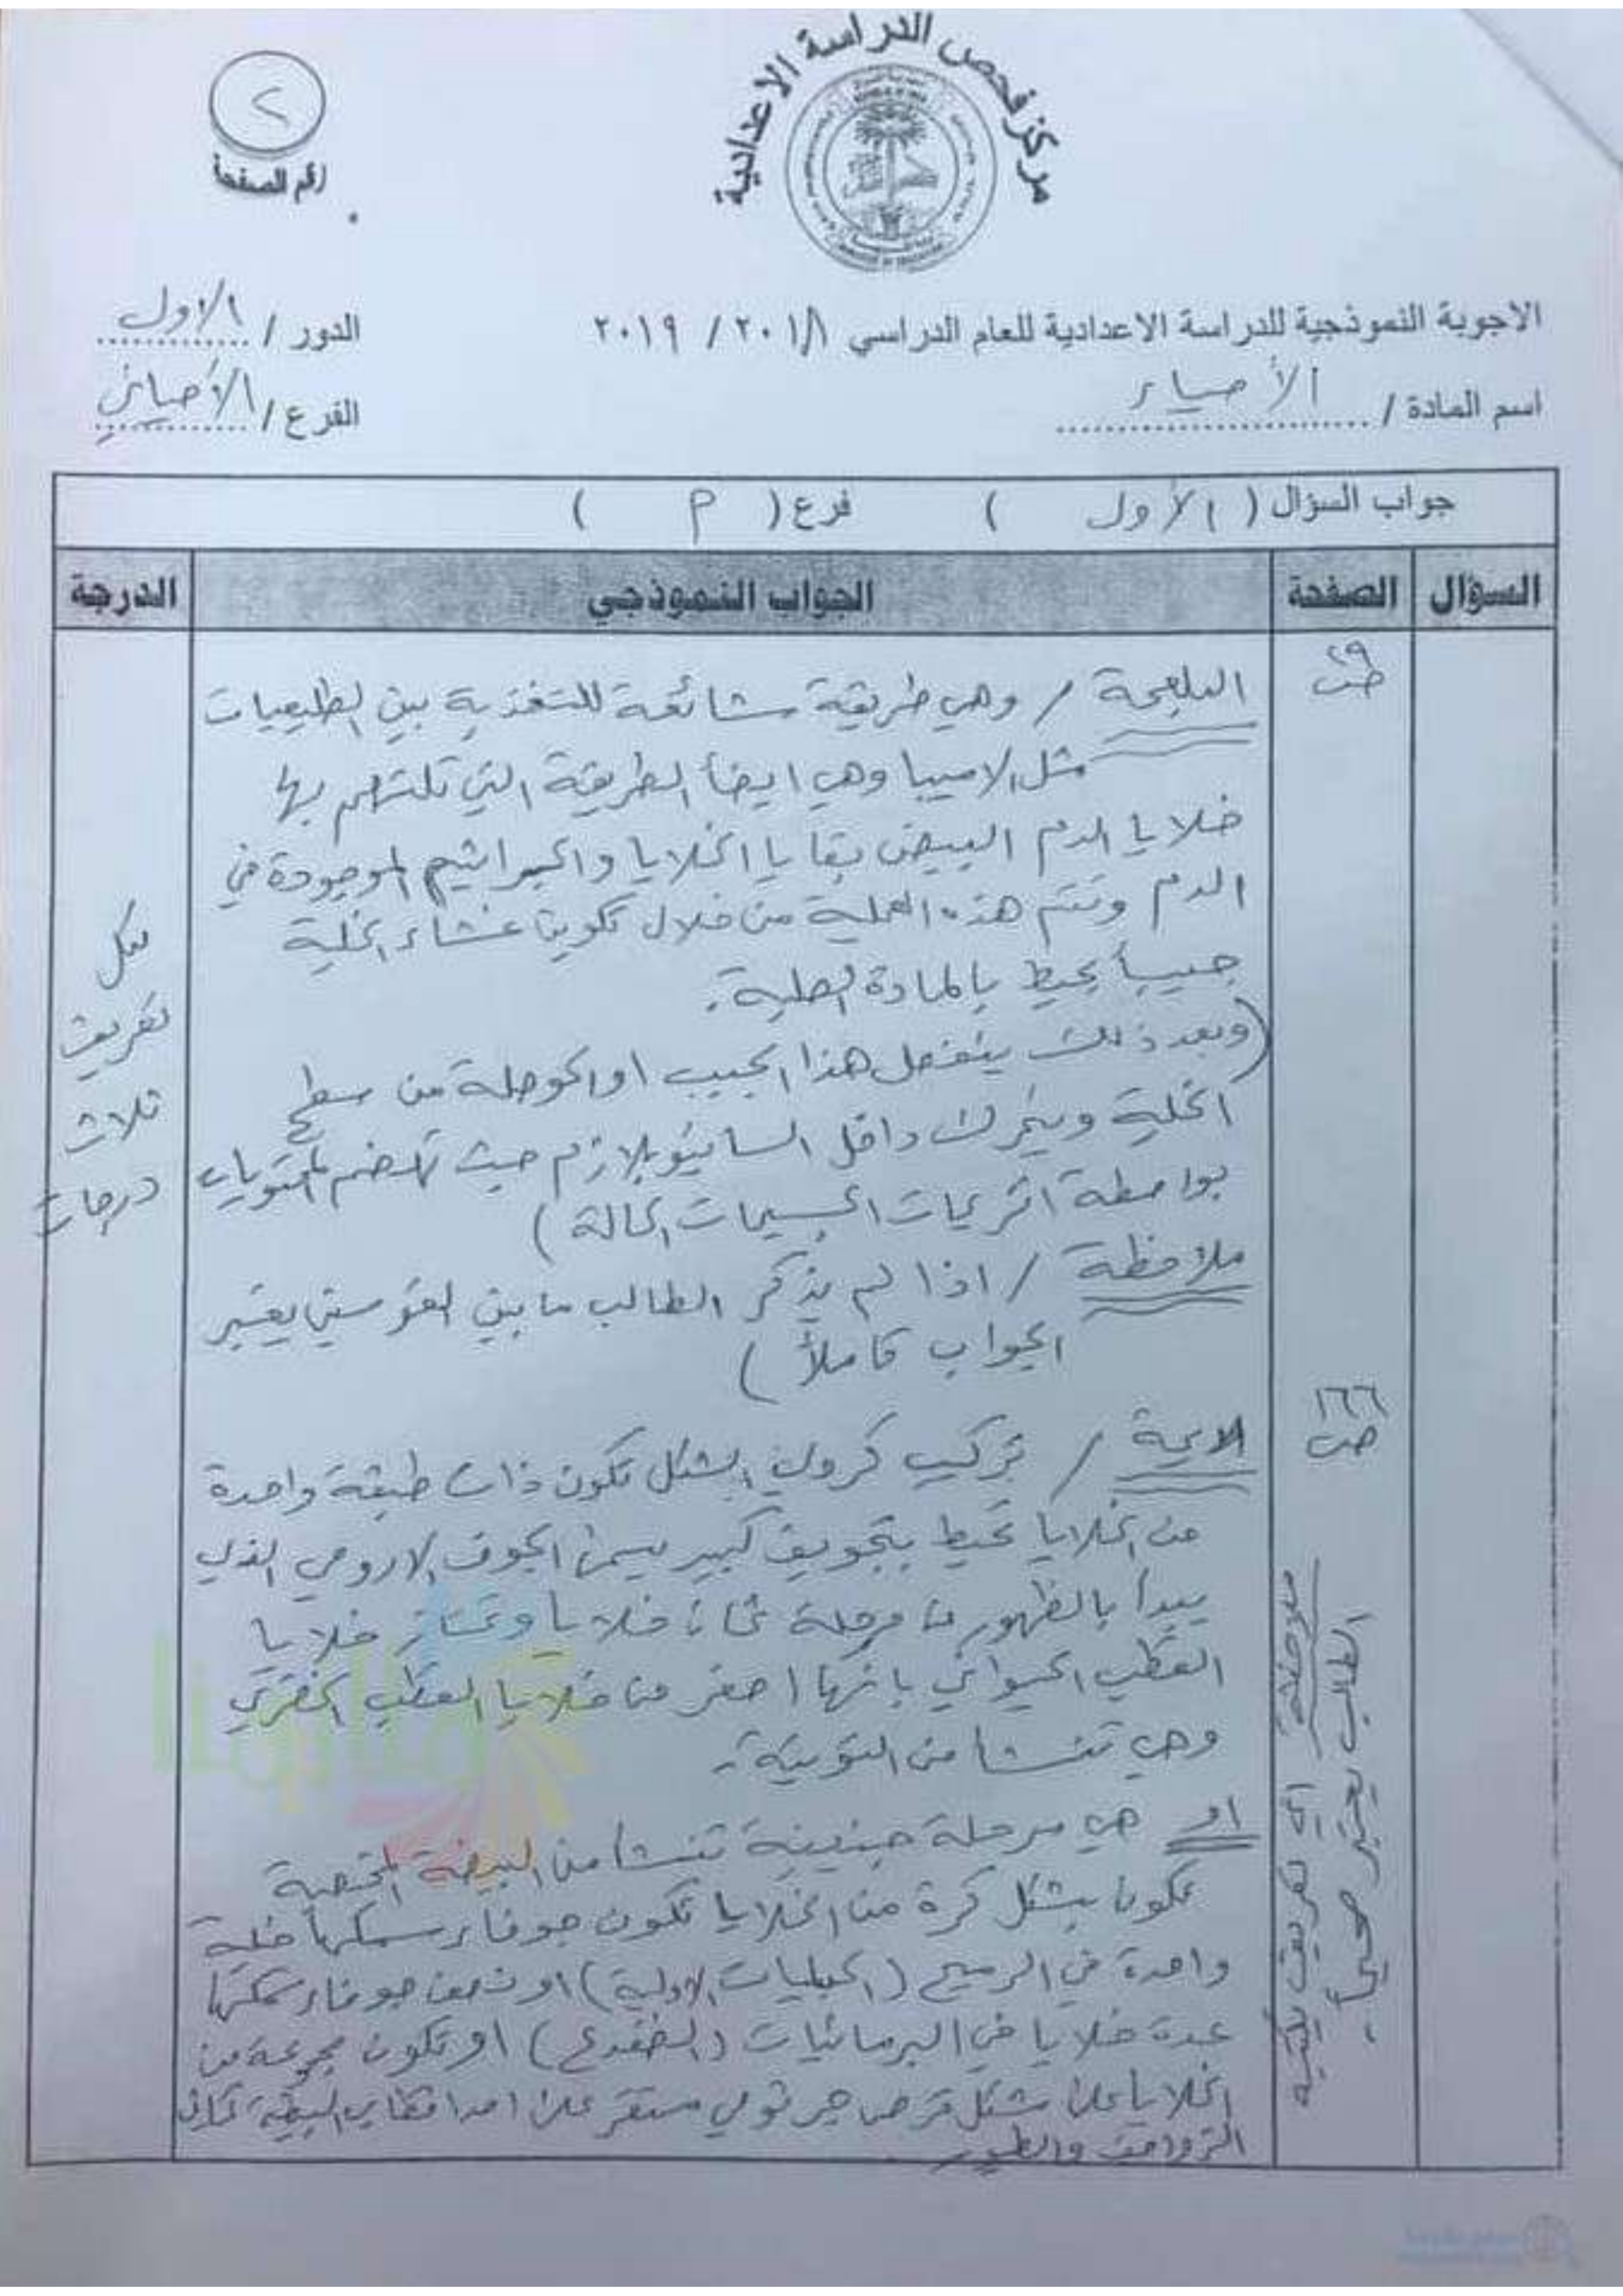 مركز فحص الدراسة الاعدادية
٢
رقم الصفحة
الاجوبة النموذجية للدراسة الاعدادية للعام الدراسي ٢٠١٨ / ٢٠١٩
الدور / الاول
اسم المادة / الأحياء
الفرع / الأحيائي
جواب السؤال ( الأول ) فرع ( م )
السؤال الصفحة الجواب النموذجي الدرجة
ص ٢٩
البلعمة / وهي طريقة شائعة للتغذية بين الطليعيات
مثل الاميبا وهي ايضاً الطريقة التي تلتهم بها
خلايا الدم البيض بقايا الخلايا والجراثيم الموجودة في
الدم وتتم هذه العملية من خلال تكوين غشاء الخلية
جيباً يحيط بالمادة الصلبة.
(وبعد ذلك ينفصل هذا الجيب او الحوصلة من سطح
الخلية ويتحرك داخل السايتوبلازم حيث تهضم المحتويات
بواسطة انزيمات الجسيمات الحالة )
ملاحظة / اذا لم يذكر الطالب ما بين القوسين يعتبر
الجواب كاملاً )
لكل
تعريف
ثلاث
درجات
ص ١٦٦
الاريمة / تركيب كروي الشكل تكون ذات طبقة واحدة
من الخلايا تحيط بتجويف كبير يسمى الجوف الارومي الذي
يبدأ بالظهور من مرحلة ثمان خلايا وتمتاز خلايا
القطب الحيواني بانها اصغر من خلايا القطب الخضري
وهي تنشأ من التويتة.
او هي مرحلة جنينية تنشأ من البيضة المخصبة
تكون بشكل كرة من الخلايا تكون جوفاء سمكها خلية
واحدة في الرميح (الحبليات الاولية) او نصف جوفاء سمكها
عدة خلايا في البرمائيات (الضفدع) او تكون مجموعة من
الخلايا على شكل قرص جرثومي مستقر على احد اقطاب البيضة كما في
الزواحف والطيور
ملاحظة اي تعريف يكتبه
الطالب يعتبر صحيحاً.